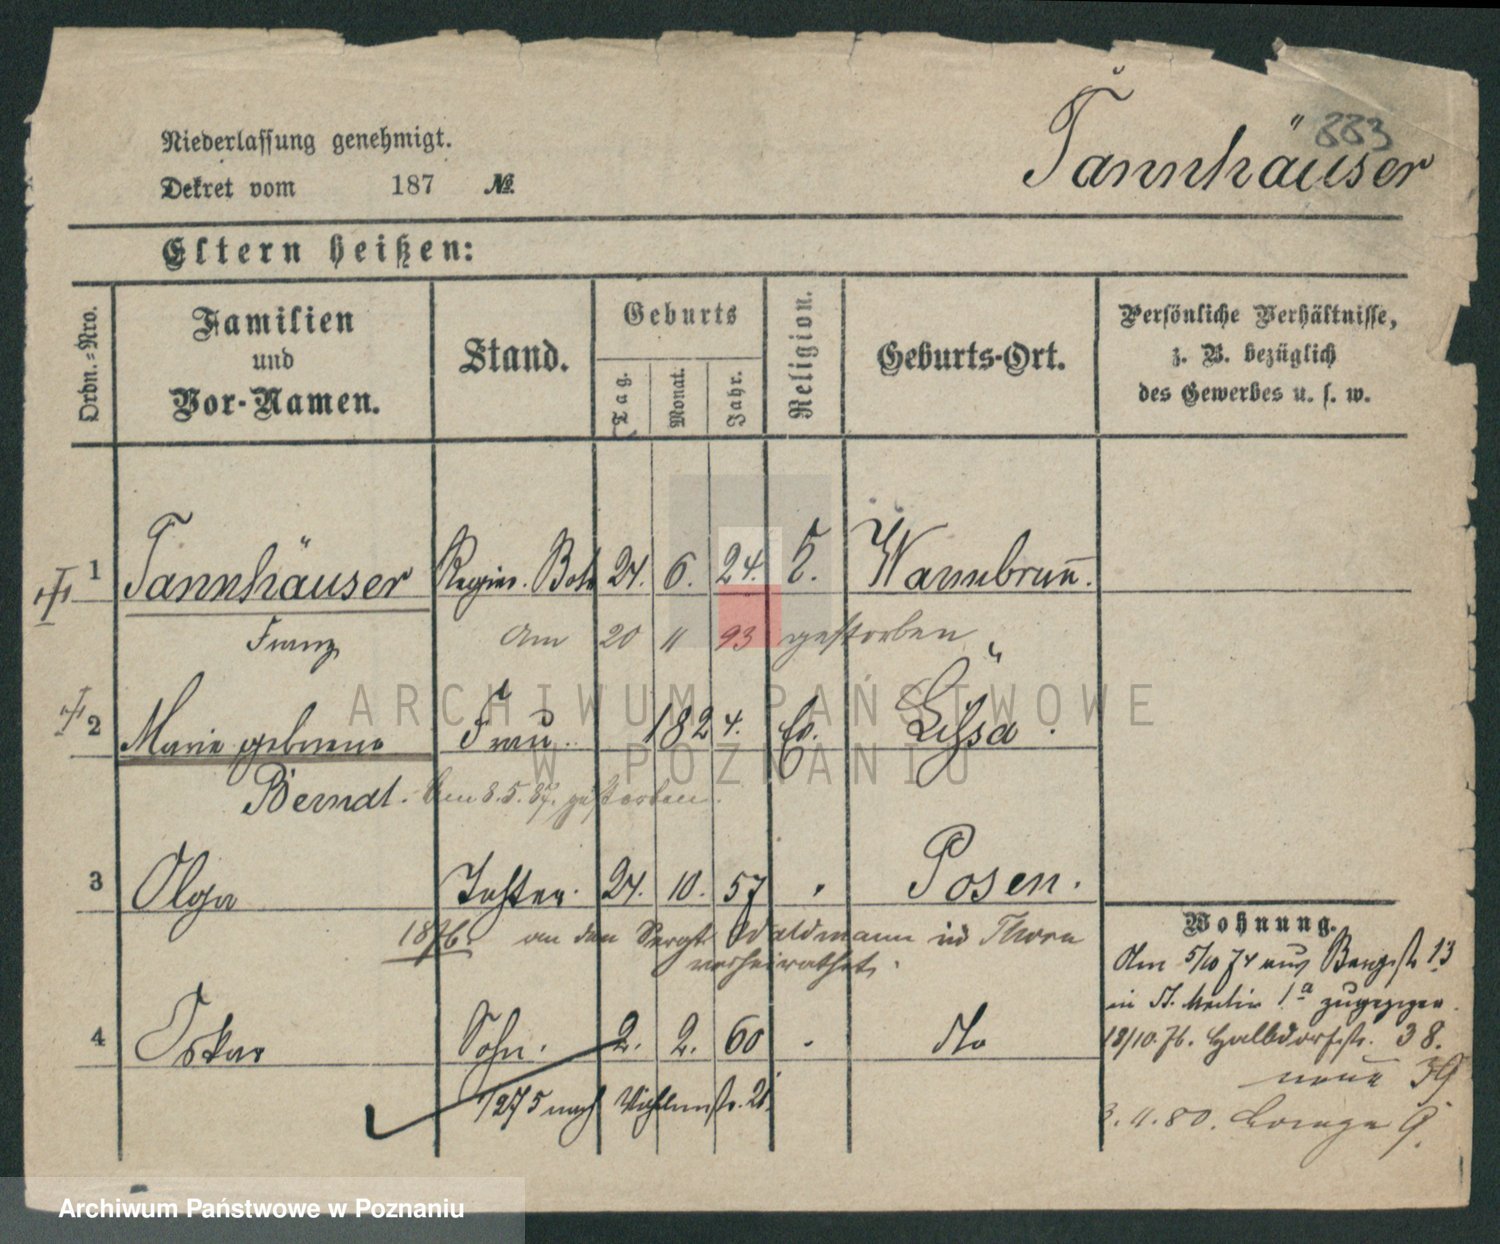 883
Tannhäuser
Niederlassung genehmigt.
Dekret vom 187 №
Eltern heißen:
Ordn.-Nro.
Familien
und
Vor-Namen.
Stand.
Geburts
Tag.
Monat.
Jahr.
Religion.
Geburts-Ort.
Persönliche Verhältnisse,
z. B. bezüglich
des Gewerbes u. s. w.
1 Tannhäuser 24. 6. 24. Warmbrunn.
Franz am 20 11 93 gestorben
2 Marie geborene Frau 1824. Lissa.
Berndt. Am 8.5.87. gestorben.
3 Olga Tochter. 24. 10. 57 Posen.
1876. an den Sergt. Waldmann in Thorn
verheirathet.
4 Oskar Sohn. 2. 2. 60 do
1275 nach 21.
Wohnung.
Am 5/10 74 aus Bergstr 13
in St. Martin 1a zugezogen.
18/10.76. Halbdorfstr. 38.
neue 39
3.11.80. Lange 9.
ARCHIWUM PAŃSTWOWE
W POZNANIU
Archiwum Państwowe w Poznaniu